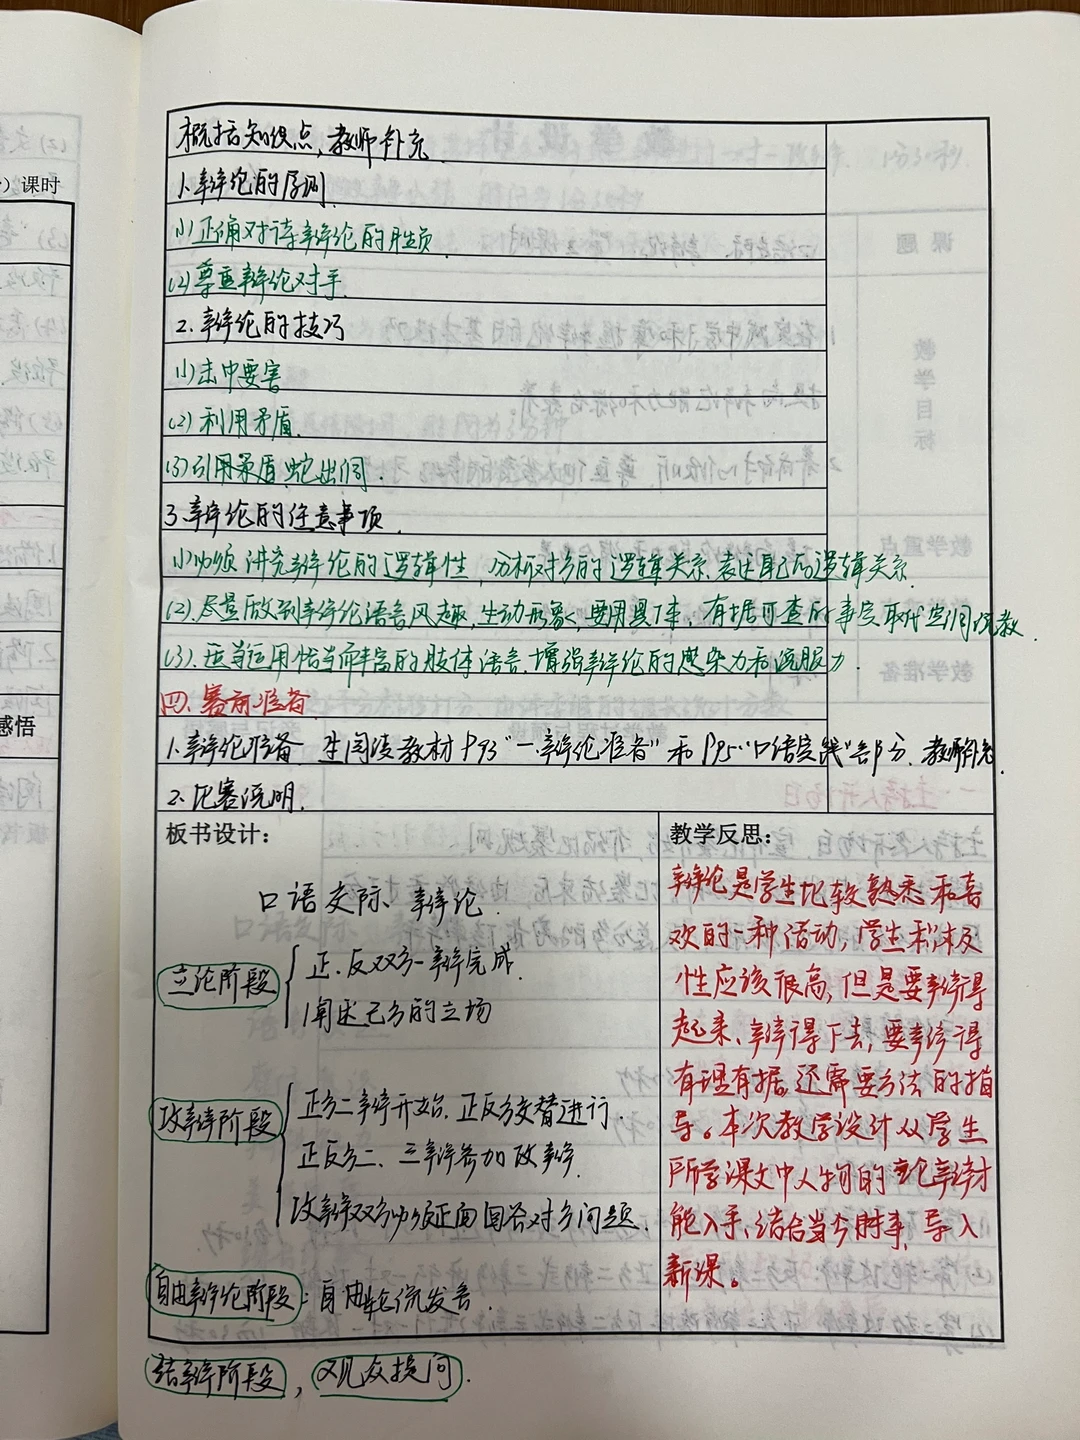 概括知识点,教师补充
1.辩论的原则
(1)正确对待辩论的胜负
(2)尊重辩论对手
2.辩论的技巧
(1)击中要害
(2)利用矛盾
(3)引用矛盾 蛇出洞.
3.辩论的注意事项
(1)必须讲究辩论的逻辑性,分析对方的逻辑关系.表达自己的逻辑关系
(2).尽量做到辩论语言风趣,生动形象,要用具体,有据可查的事实取代空洞说教.
(3).适当运用恰当而丰富的肢体语言.增强辩论的感染力和说服力.
四.赛前准备
1.辩论准备 生阅读教材P93"一.辩论准备"和P95"口语实践"部分.教师补充.
2.比赛说明.
板书设计:
口语交际、辩论.
立论阶段
正.反双方一辩完成.
阐述己方的立场
攻辩阶段
正方二辩开始,正反方交替进行.
正反方二、三辩参加攻辩
攻辩双方必须正面回答对方问题.
自由辩论阶段:自由轮流发言.
结辩阶段,观众提问.
教学反思:
辩论是学生比较熟悉和喜
欢的一种活动,学生积极
性应该很高,但是要辩得
起来、辩得下去,要辩得
有理有据,还需要方法的指
导。本次教学设计从学生
所学课文中人物的辩才
能入手,结合当今时事,导入
新课。
)课时
感悟